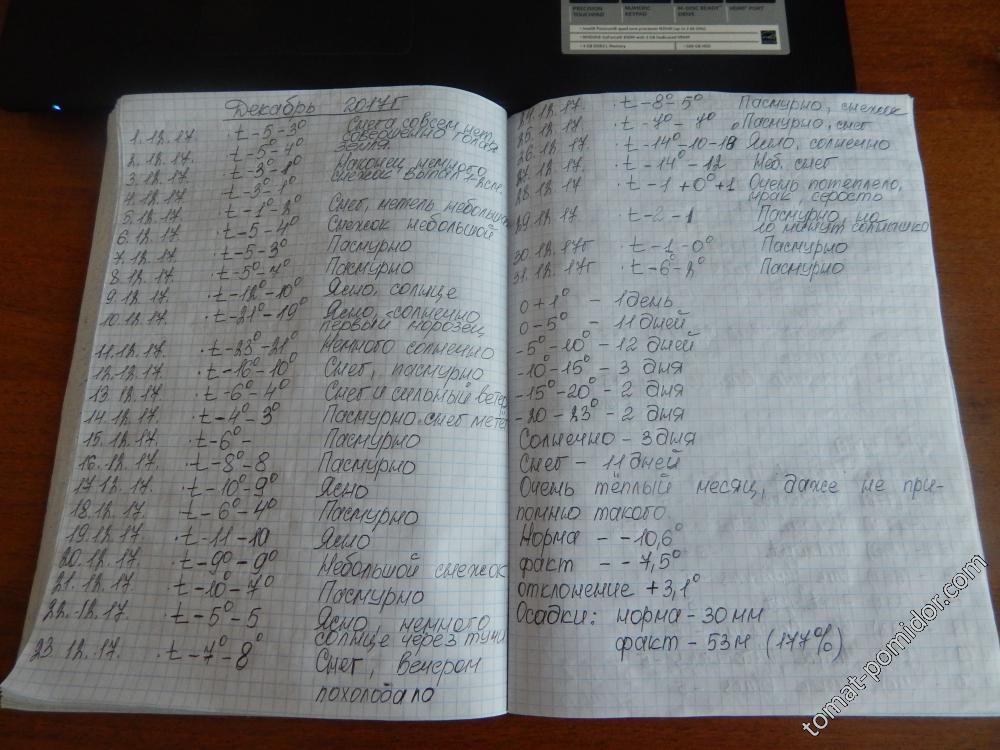 PRECISION TOUCHPAD
NUMERIC KEYPAD
M-DISC READY DRIVE
HDMI PORT
Декабрь 2017г
1.12.17 t-5-3° Снега совсем нет, совершенно голая земля
2.12.17 t-5°-4°
3.12.17 t-3°-1° Наконец немного снежок выпал
4.12.17 t-3°-1°
5.12.17. t-1°-2° Снег, метель небольшая
6.12.17. t-5-4° Снежок небольшой
7.12.17. t-5-3° Пасмурно
8.12.17. t-5°-7° Пасмурно
9.12.17. t-12°-10° Ясно, солнце
10.12.17. t-21°-19° Ясно, солнечно
первый морозец
11.12.17. t-23°-21° Немного солнечно
12.12.17. t-16°-10° Снег, пасмурно
13.12.17. t-6°-4° Снег и сильный ветер
14.12.17. t-4°-3° Пасмурно снег метёт
15.12.17. t-6°- Пасмурно
16.12.17. t-8°-8 Пасмурно
17.12.17. t-10°-9° Ясно
18.12.17. t-6°-4° Пасмурно
19.12.17. t-11-10 Ясно
20.12.17. t-9°-9° Небольшой снежок
21.12.17. t-10°-7° Пасмурно
22.12.17. t-5°-5 Ясно, немного
солнце через тучи
23.12.17. t-7°-8° Снег, вечером
похолодало
24.12.17. t-8°-5° Пасмурно, снежок
25.12.17. t-7°-7° Пасмурно, снег
26.12.17. t-14°-10-18 Ясно, солнечно
27.12.17. t-14°-12 Неб. снег
28.12.17 t-1+0°+1 Очень потеплело,
мрак, серость
29.12.17 t-2-1 Пасмурно, но
10 минут солнышко
30.12.17г t-1-0° Пасмурно
31.12.17г t-6°-2° Пасмурно
0+1° - 1 день
0-5° - 11 дней
-5°-10° - 12 дней
-10-15° - 3 дня
-15°-20° - 2 дня
-20-23° - 2 дня
Солнечно - 3 дня
Снег - 11 дней
Очень тёплый месяц, даже не при-
помню такого.
Норма - -10,6°
факт - -7,5°
отклонение +3,1°
Осадки: норма - 30 мм
факт - 53 м (177%)
tomat-pomidor.com